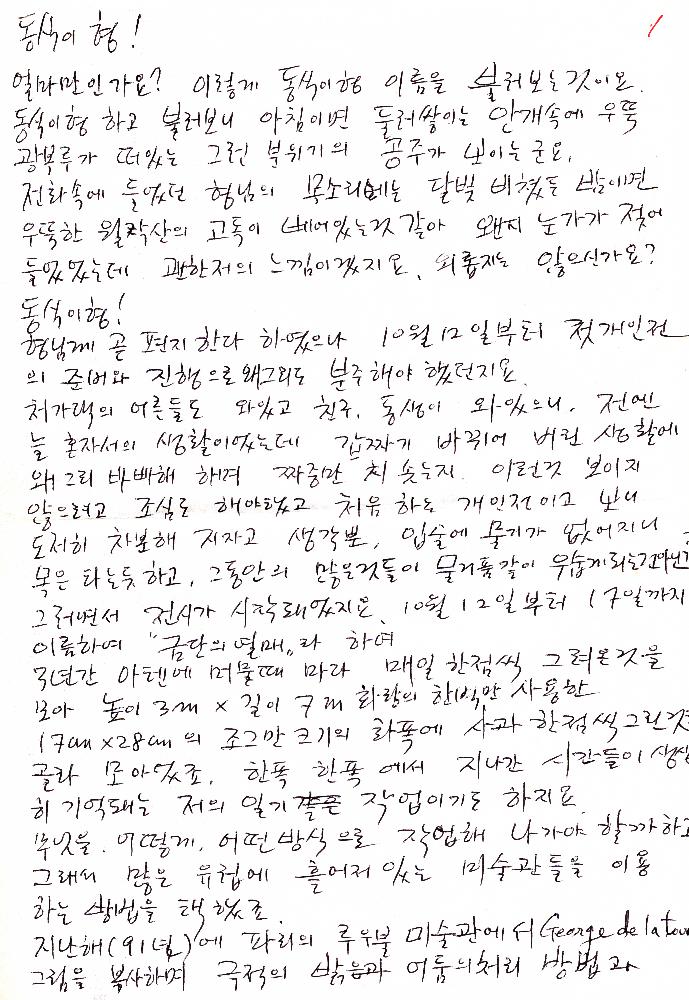 1
동식이 형!
얼마만인가요? 이렇게 동식이형 이름을 불러보는것이요.
동식이형 하고 불러보니 아침이면 둘러쌓이는 안개속에 우뚝
광복루가 떠있는 그런 분위기의 공주가 보이는군요.
전화속에 들었던 형님의 목소리에는 달빛 비쳤든 밤이면
우뚝한 월락산의 고독이 베어있는것 같아 왠지 눈가가 젖어
들었었는데 괜한저의 느낌이겠지요, 외롭지는 않으신가요?
동식이형!
형님께 곧 편지 한다 하였으나 10월 12일부터 첫개인전
의 준비와 진행으로 왜그리도 분주해야 했던지요.
처가댁의 어른들도 와있고 친구, 동생이 와있으니, 전엔
늘 혼자서의 생활이었는데 갑짜기 바뀌어 버린 생활에
왜그리 바빠해 하며 짜증만 치솟는지. 이런것 보이지
않으려고 조심도 해야했고 처음 하는 개인전이고 보니
도저히 차분해 지자고 생각뿐, 입술에 물기가 없어지니
목은 타는듯하고, 그동안의 많은것들이 물거품같이 우습게되는건아닌가
그러면서 전시가 시작돼었지요. 10월 12일부터 17일까지
이름하여 "금단의 열매"라 하여
3년간 아텐에 머물때 마다 매일 한점씩 그려온것을
모아 높이 3m × 길이 7m 화랑의 한벽만 사용한
17cm×28cm의 조그만 크기의 화폭에 사과 한점씩 그린것
골라 모아었죠. 한폭 한폭에서 지나간 시간들이 생생
히 기억돼는 저의 일기같은 작업이기도 하지요.
무엇을, 어떻게, 어떤방식으로 작업해 나가야 할까하고
그래서 많은 유럽에 흩어져 있는 미술관들을 이용
하는 방법을 택했죠.
지난해(91년)에 파리의 루우불 미술관에서 George de la tour
그림을 복사하며 극적의 밝음과 어둠의처리 방법과